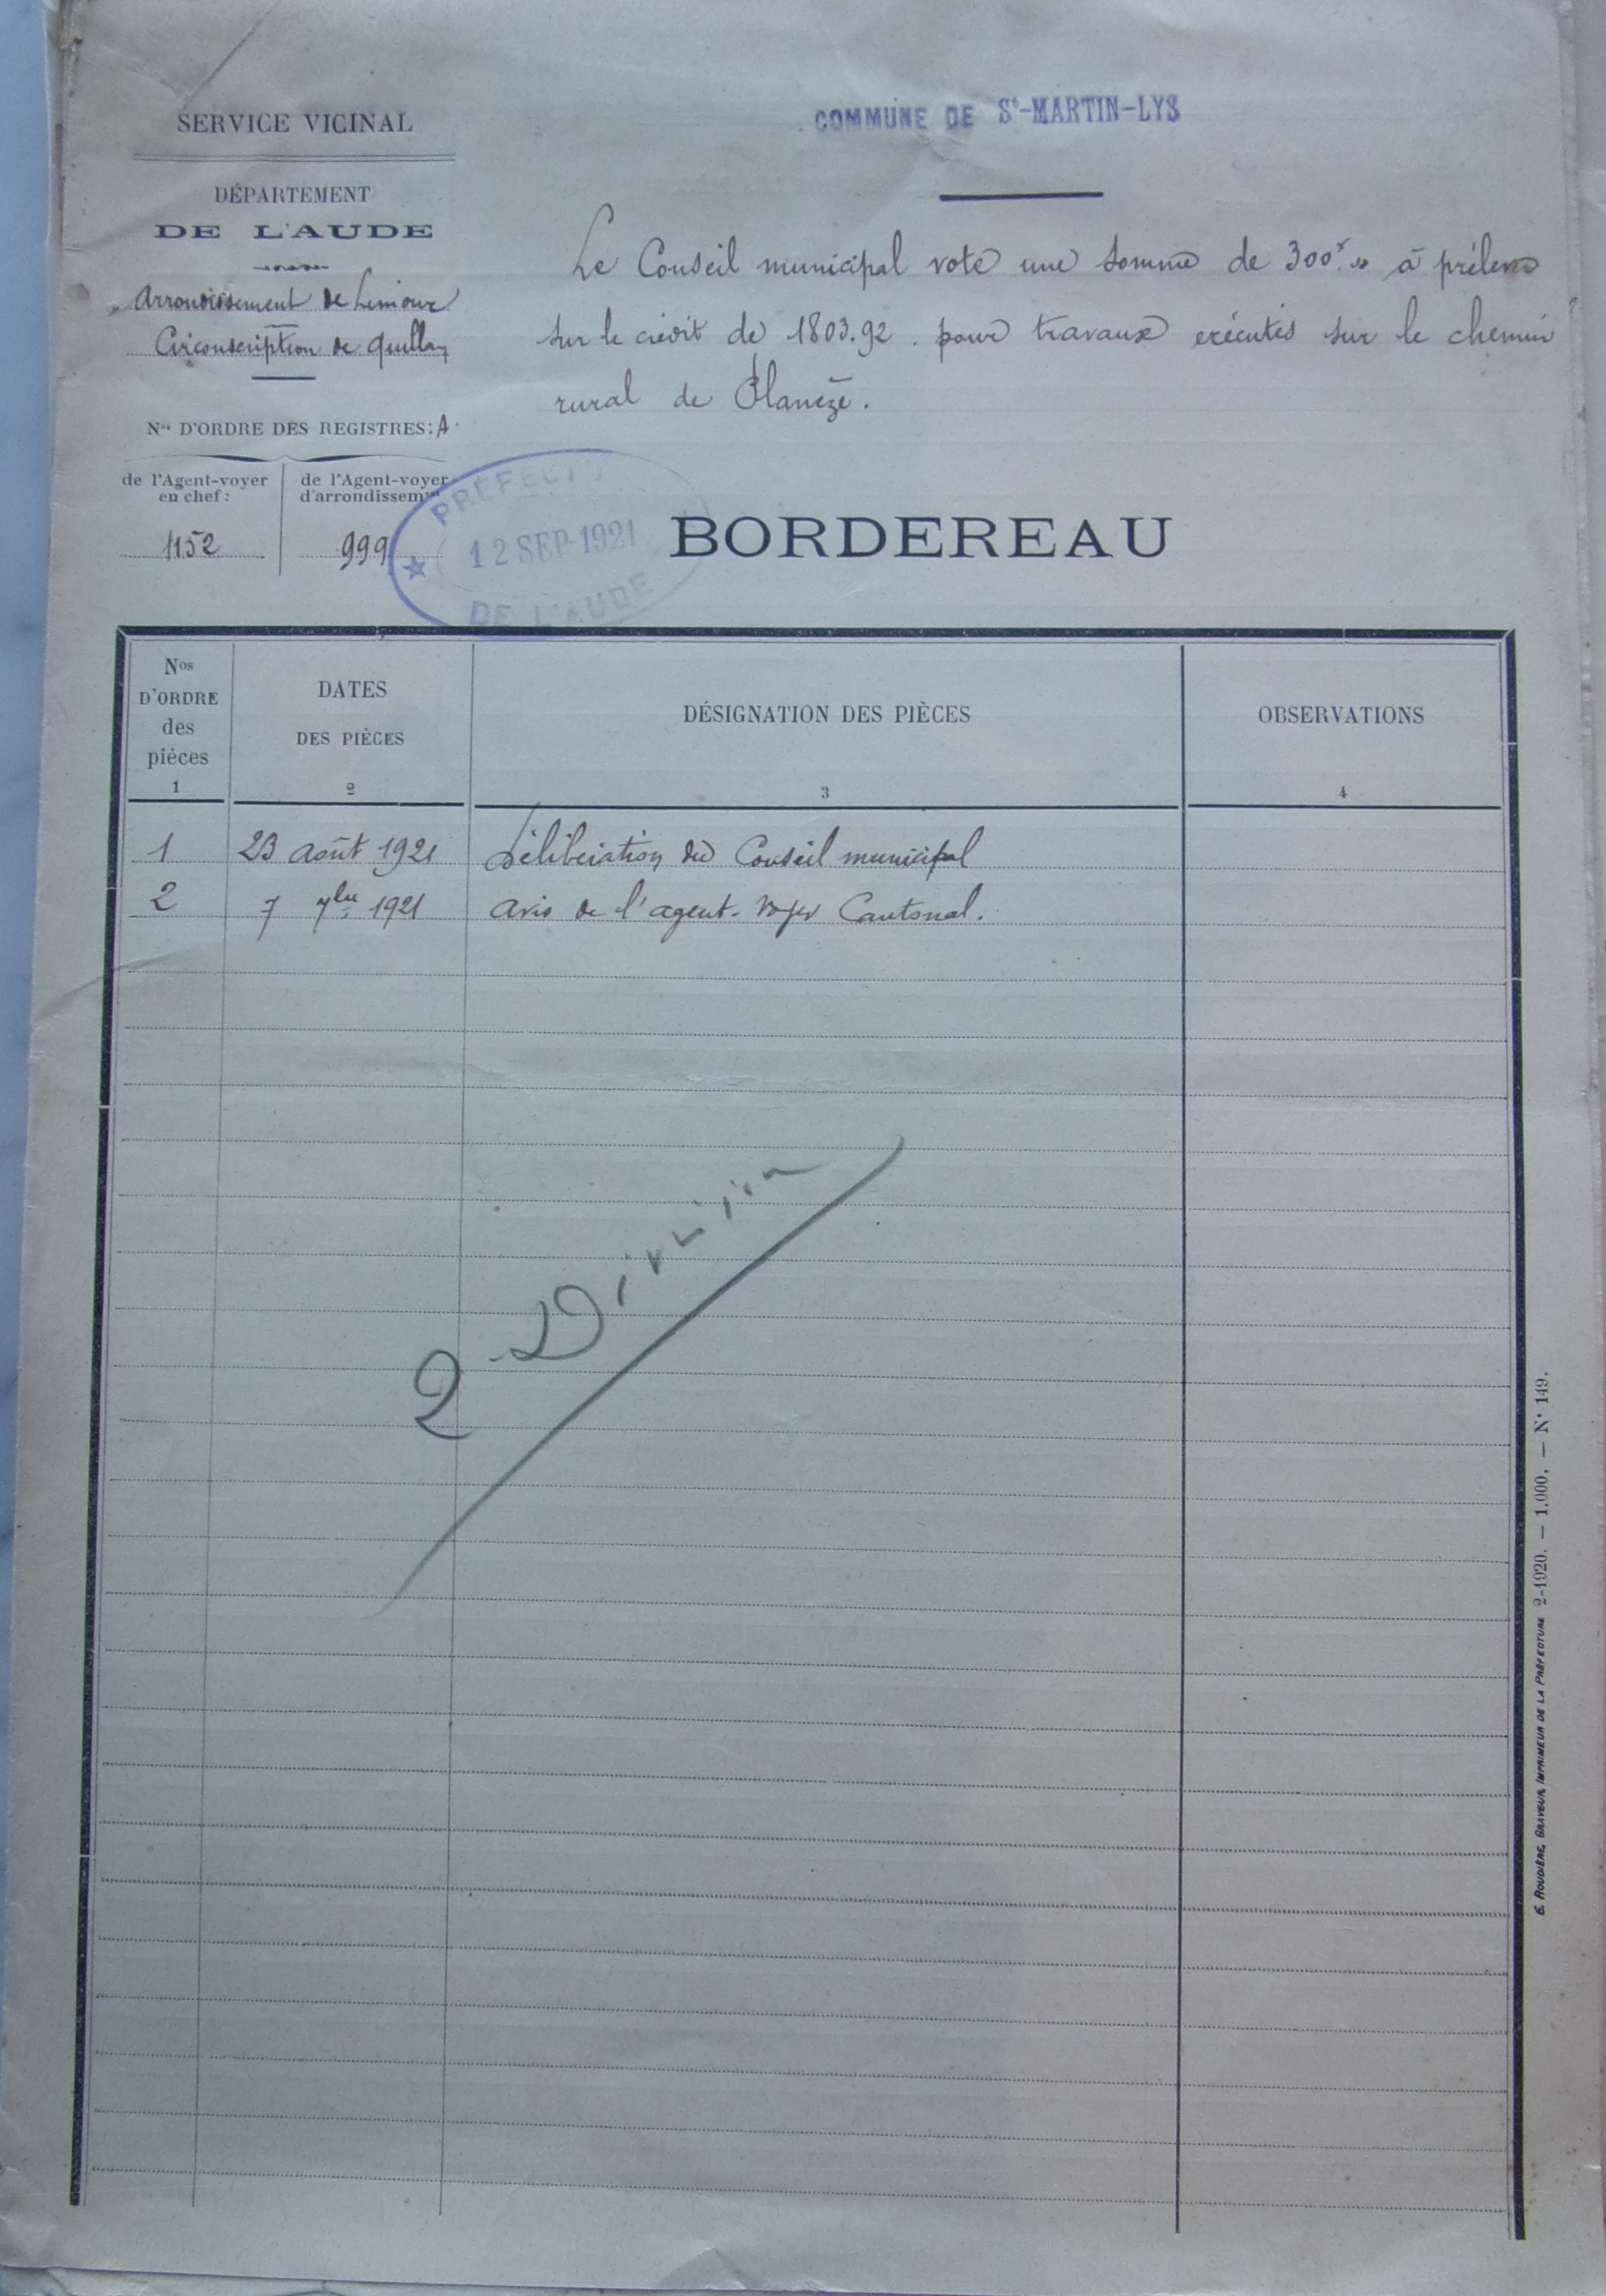 SERVICE VICINAL
DÉPARTEMENT
DE L'AUDE
Arrondissement de Limoux
Circonscription de Quillan
Nos D'ORDRE DES REGISTRES: A.
de l'Agent-voyer
en chef:
de l'Agent-voyer
d'arrondissemt
1152
999
COMMUNE DE St-MARTIN-LYS
Le Conseil municipal vote une somme de 300f » à prélever
sur le crédit de 1803.92. pour travaux exécutés sur le chemin
rural de Planèze.
PRÉFECTU
12 SEP 1921
DE L'AUDE
BORDEREAU
Nos
D'ORDRE
des
pièces
1
DATES
DES PIÈCES
2
DÉSIGNATION DES PIÈCES
3
OBSERVATIONS
4
1 23 août 1921 Délibération du Conseil municipal
2 7 7bre 1921 Avis de l'agent-voyer Cantonal.
2 Division
G. ROUDIÈRE, GRAVEUR, IMPRIMEUR DE LA PRÉFECTURE 2-1920. — 1.000. — N° 149.